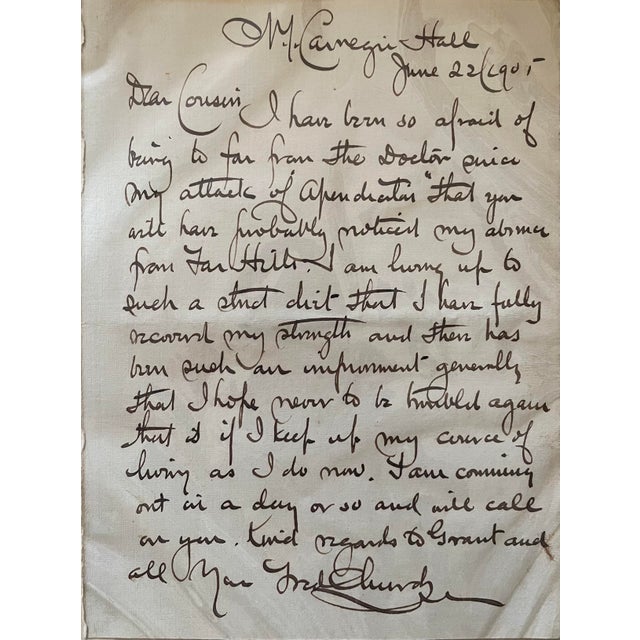 N.Y. Carnegie Hall
June 22/1905
Dear Cousin I have been so afraid of
being to far from the Doctor since
my attack of "Apendicatus" that you
will have probably noticed my absence
from Far Hills. I am living up to
such a strict diet that I have fully
recovered my strength and there has
been such an improvment generally
that I hope never to be troubled again
that is if I keep up my cource of
living as I do now. I am comming
out in a day or so and will call
on you. Kind regards to Grant and
all Your Fred Church